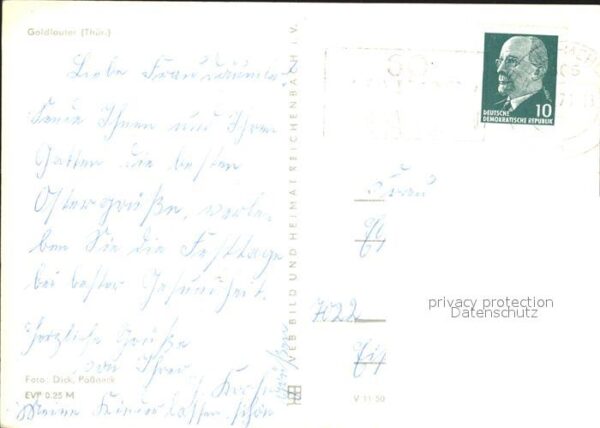 Goldlauter (Thür.)
Liebe Frau
sende Ihnen und Ihrem
Gatten die besten
Ostergrüße, verle-
ben Sie die Festtage
bei bester Gesundheit.
Herzliche Grüße
von Ihrer
Meine Kinder lassen schön
grüßen
Foto: Dick, Pößneck
EVP 0.25 M
VEB BILD UND HEIMAT REICHENBACH i. V.
DEUTSCHE
DEMOKRATISCHE REPUBLIK
10
Frau
722
privacy protection
Datenschutz
V 11-50